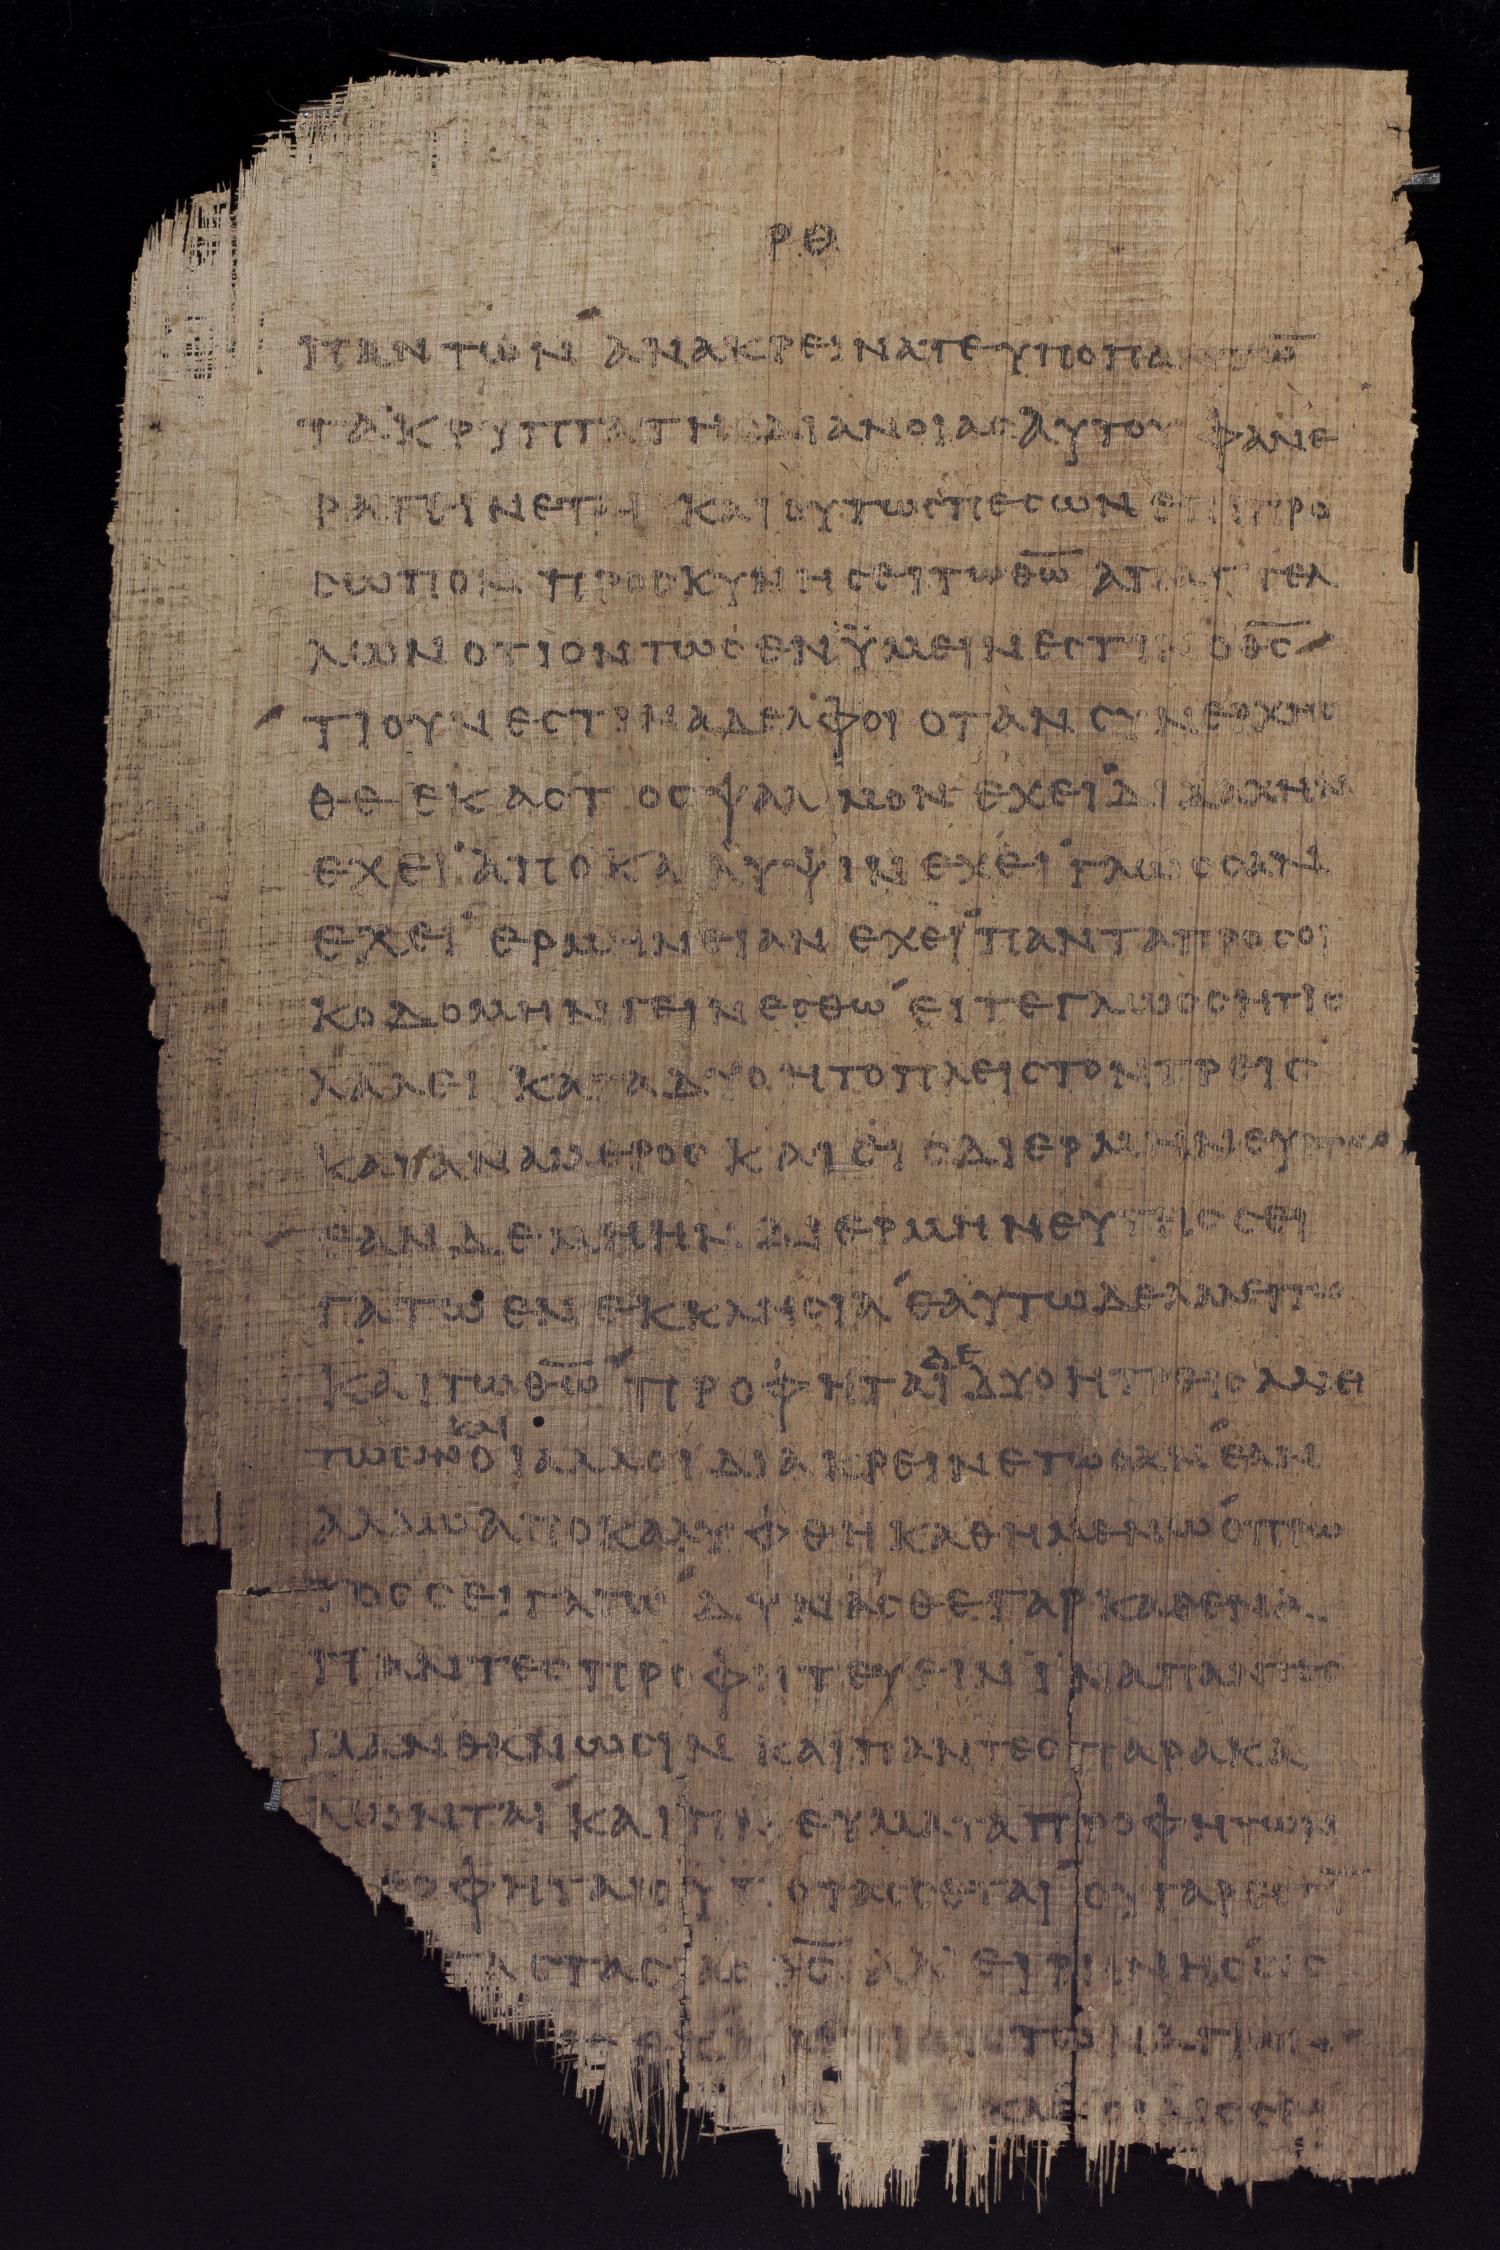 ΡΘ
ΠΑΝΤΩΝ ΑΝΑΚΡΕΙΝΑΤΕ ΥΠΟ ΠΑΝΤΩ̅
ΤΑ ΚΡΥΠΤΑ ΤΗΣ ΔΙΑΝΟΙΑΣ ΑΥΤΟΥ ΦΑΝΕ
ΡΑ ΓΙΝΕΤΑΙ ΚΑΙ ΟΥΤΩΣ ΠΕΣΩΝ ΕΠΙ ΠΡΟ
ΣΩΠΟΝ ΠΡΟΣΚΥΝΗΣΕΙ ΤΩ Θ̅Ω̅ ΑΠΑΓΓΕΛ
ΛΩΝ ΟΤΙ ΟΝΤΩΣ ΕΝ ΫΜΕΙΝ ΕΣΤΙΝ Ο Θ̅Σ̅
ΤΙ ΟΥΝ ΕΣΤΙΝ ΑΔΕΛΦΟΙ ΟΤΑΝ ΣΥΝΕΡΧΗΣ
ΘΕ ΕΚΑΣΤΟΣ ΨΑΛΜΟΝ ΕΧΕΙ ΔΙΔΑΧΗΝ
ΕΧΕΙ ΑΠΟΚΑΛΥΨΙΝ ΕΧΕΙ ΓΛΩΣΣΑΝ
ΕΧΕΙ ΕΡΜΗΝΕΙΑΝ ΕΧΕΙ ΠΑΝΤΑ ΠΡΟΣ ΟΙ
ΚΟΔΟΜΗΝ ΓΕΙΝΕΣΘΩ ΕΙΤΕ ΓΛΩΣΣΗ ΤΙΣ
ΛΑΛΕΙ ΚΑΤΑ ΔΥΟ Η ΤΟ ΠΛΕΙΣΤΟΝ ΤΡΕΙΣ
ΚΑΙ ΑΝΑ ΜΕΡΟΣ ΚΑΙ ΕΙΣ ΔΙΕΡΜΗΝΕΥΕΤΩ
ΕΑΝ ΔΕ ΜΗ Η ΔΙΕΡΜΗΝΕΥΤΗΣ ΣΕΙ
ΓΑΤΩ ΕΝ ΕΚΚΛΗΣΙΑ ΕΑΥΤΩ ΔΕ ΛΑΛΕΙΤΩ
ΚΑΙ ΤΩ Θ̅Ω̅ ΠΡΟΦΗΤΑΙ ΔΕ ΔΥΟ Η ΤΡΕΙΣ ΛΑΛΕΙ
ΤΩΣΑΝ ΚΑΙ ΟΙ ΑΛΛΟΙ ΔΙΑΚΡΕΙΝΕΤΩΣΑΝ ΕΑΝ
ΑΛΛΩ ΑΠΟΚΑΛΥΦΘΗ ΚΑΘΗΜΕΝΩ Ο ΠΡΩ
ΤΟΣ ΣΕΙΓΑΤΩ ΔΥΝΑΣΘΕ ΓΑΡ ΚΑΘ ΕΝΑ
ΠΑΝΤΕΣ ΠΡΟΦΗΤΕΥΕΙΝ ΙΝΑ ΠΑΝΤΕΣ
ΜΑΝΘΑΝΩΣΙΝ ΚΑΙ ΠΑΝΤΕΣ ΠΑΡΑΚΑ
ΛΩΝΤΑΙ ΚΑΙ ΠΝΕΥΜΑΤΑ ΠΡΟΦΗΤΩΝ
ΡΟΦΗΤΑΙΣ ΥΠΟΤΑΣΣΕΤΑΙ ΟΥ ΓΑΡ ΕΣΤΙΝ
ΤΑΣΤΑΣΙΑΣ Θ̅Σ̅ ΑΛΛ ΕΙΡΗΝΗΣ ΩΣ
ΤΩΝ ΑΓΙΩΝ
ΕΚΚΛΗΣΙΑΙΣ ΣΕΙ